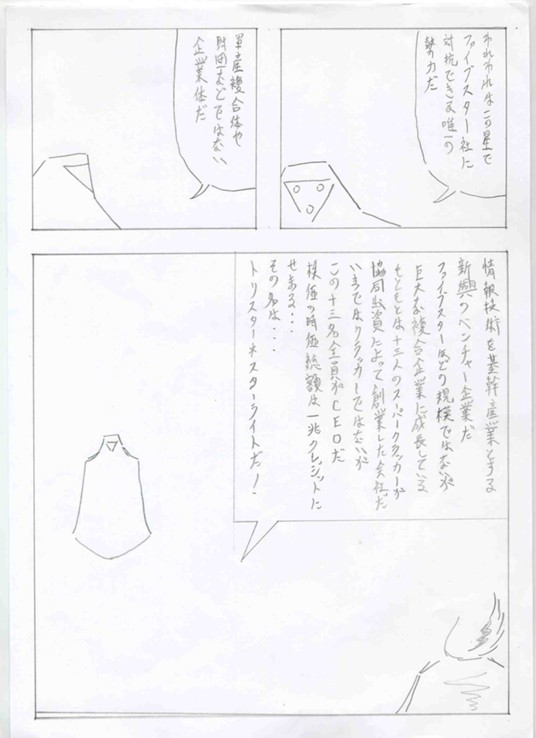 われわれはこの星で
ファイブスター社に
対抗できる唯一の
勢力だ
軍産複合体や
財団などではない
企業体だ
情報技術を基幹産業とする
新興のベンチャー企業だ
ファイブスターほどの規模ではないが
巨大な複合企業に成長している
もともとは十三人のスーパークラッカーが
協同出資によって創業した会社だ
いまではクラッカーではないが
この十三名全員がCEOだ
株価の時価総額は一兆クレジットに
せまる・・・
その名は・・・
トリスターネスターライトだ!